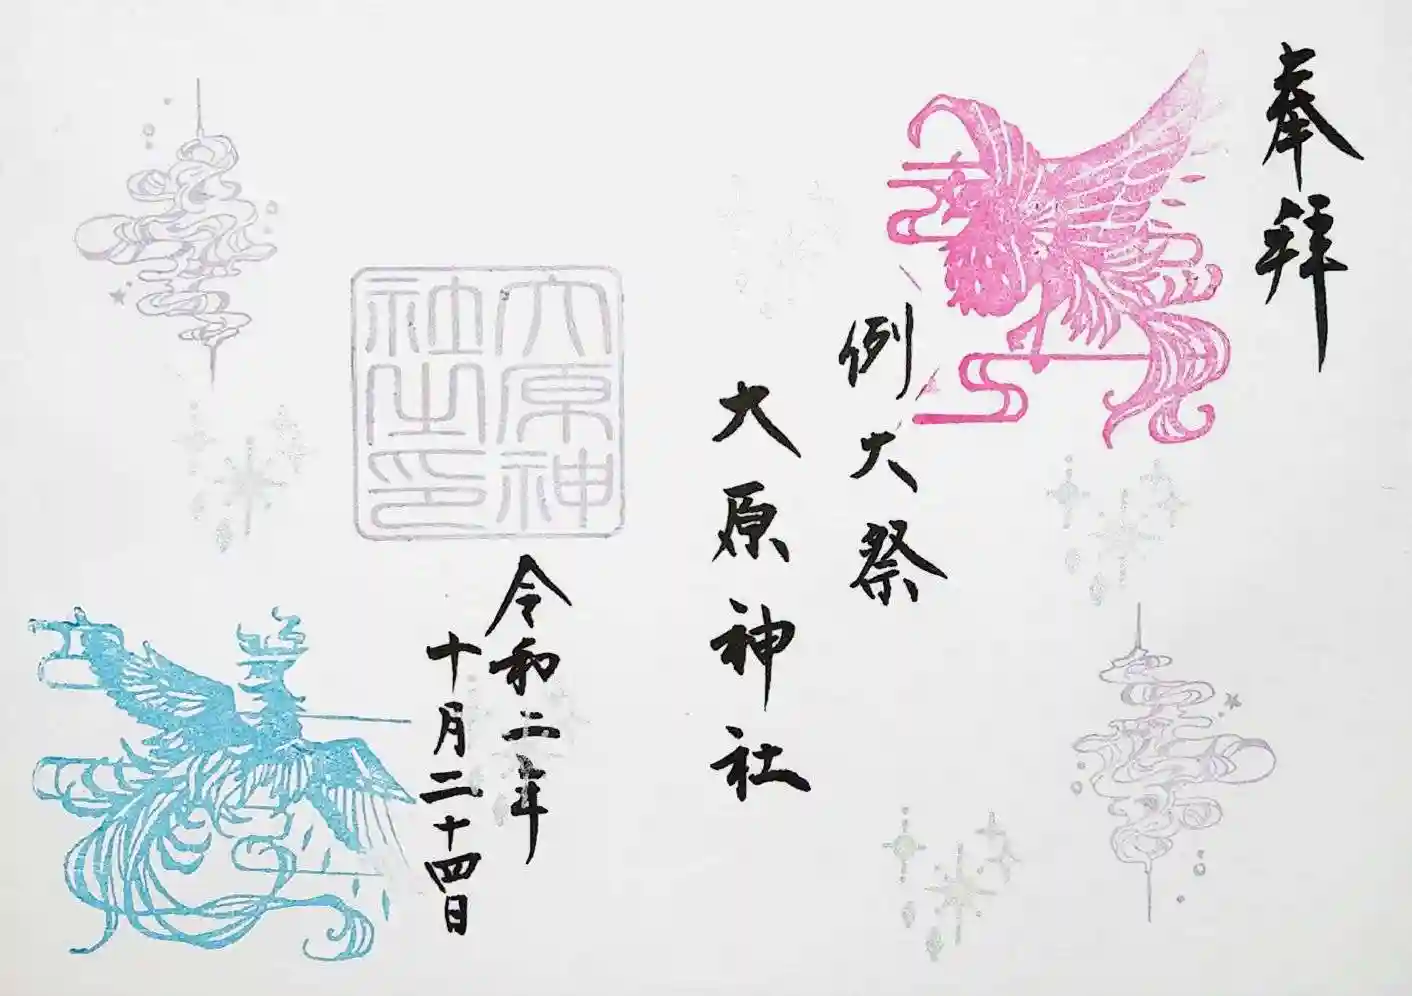 奉拝
例大祭
大原神社
大原神社之印
令和二年
十月二十四日